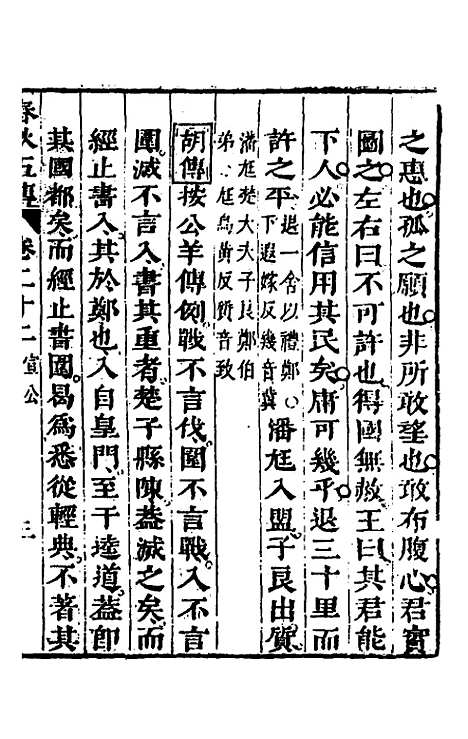 之惠也孤之願也非所敢望也敢布腹心君實
圖之左右曰不可許也得國無赦王曰其君能
下人必能信用其民矣庸可幾乎退三十里而
許之平退一舍以禮鄭○下遐嫁反幾音冀潘尫入盟子良出質
潘尫楚大夫子良鄭伯弟○尫烏黃反質音致
胡傳按公羊傳例戰不言伐圍不言戰入不言
圍滅不言入書其重者楚子縣陳葢滅之矣而
經止書入其於鄭也入自皇門至于逵道葢卽
其國都矣而經止書圍曷爲悉從輕典不著其
春秋五傳 卷二十二 宣公 三